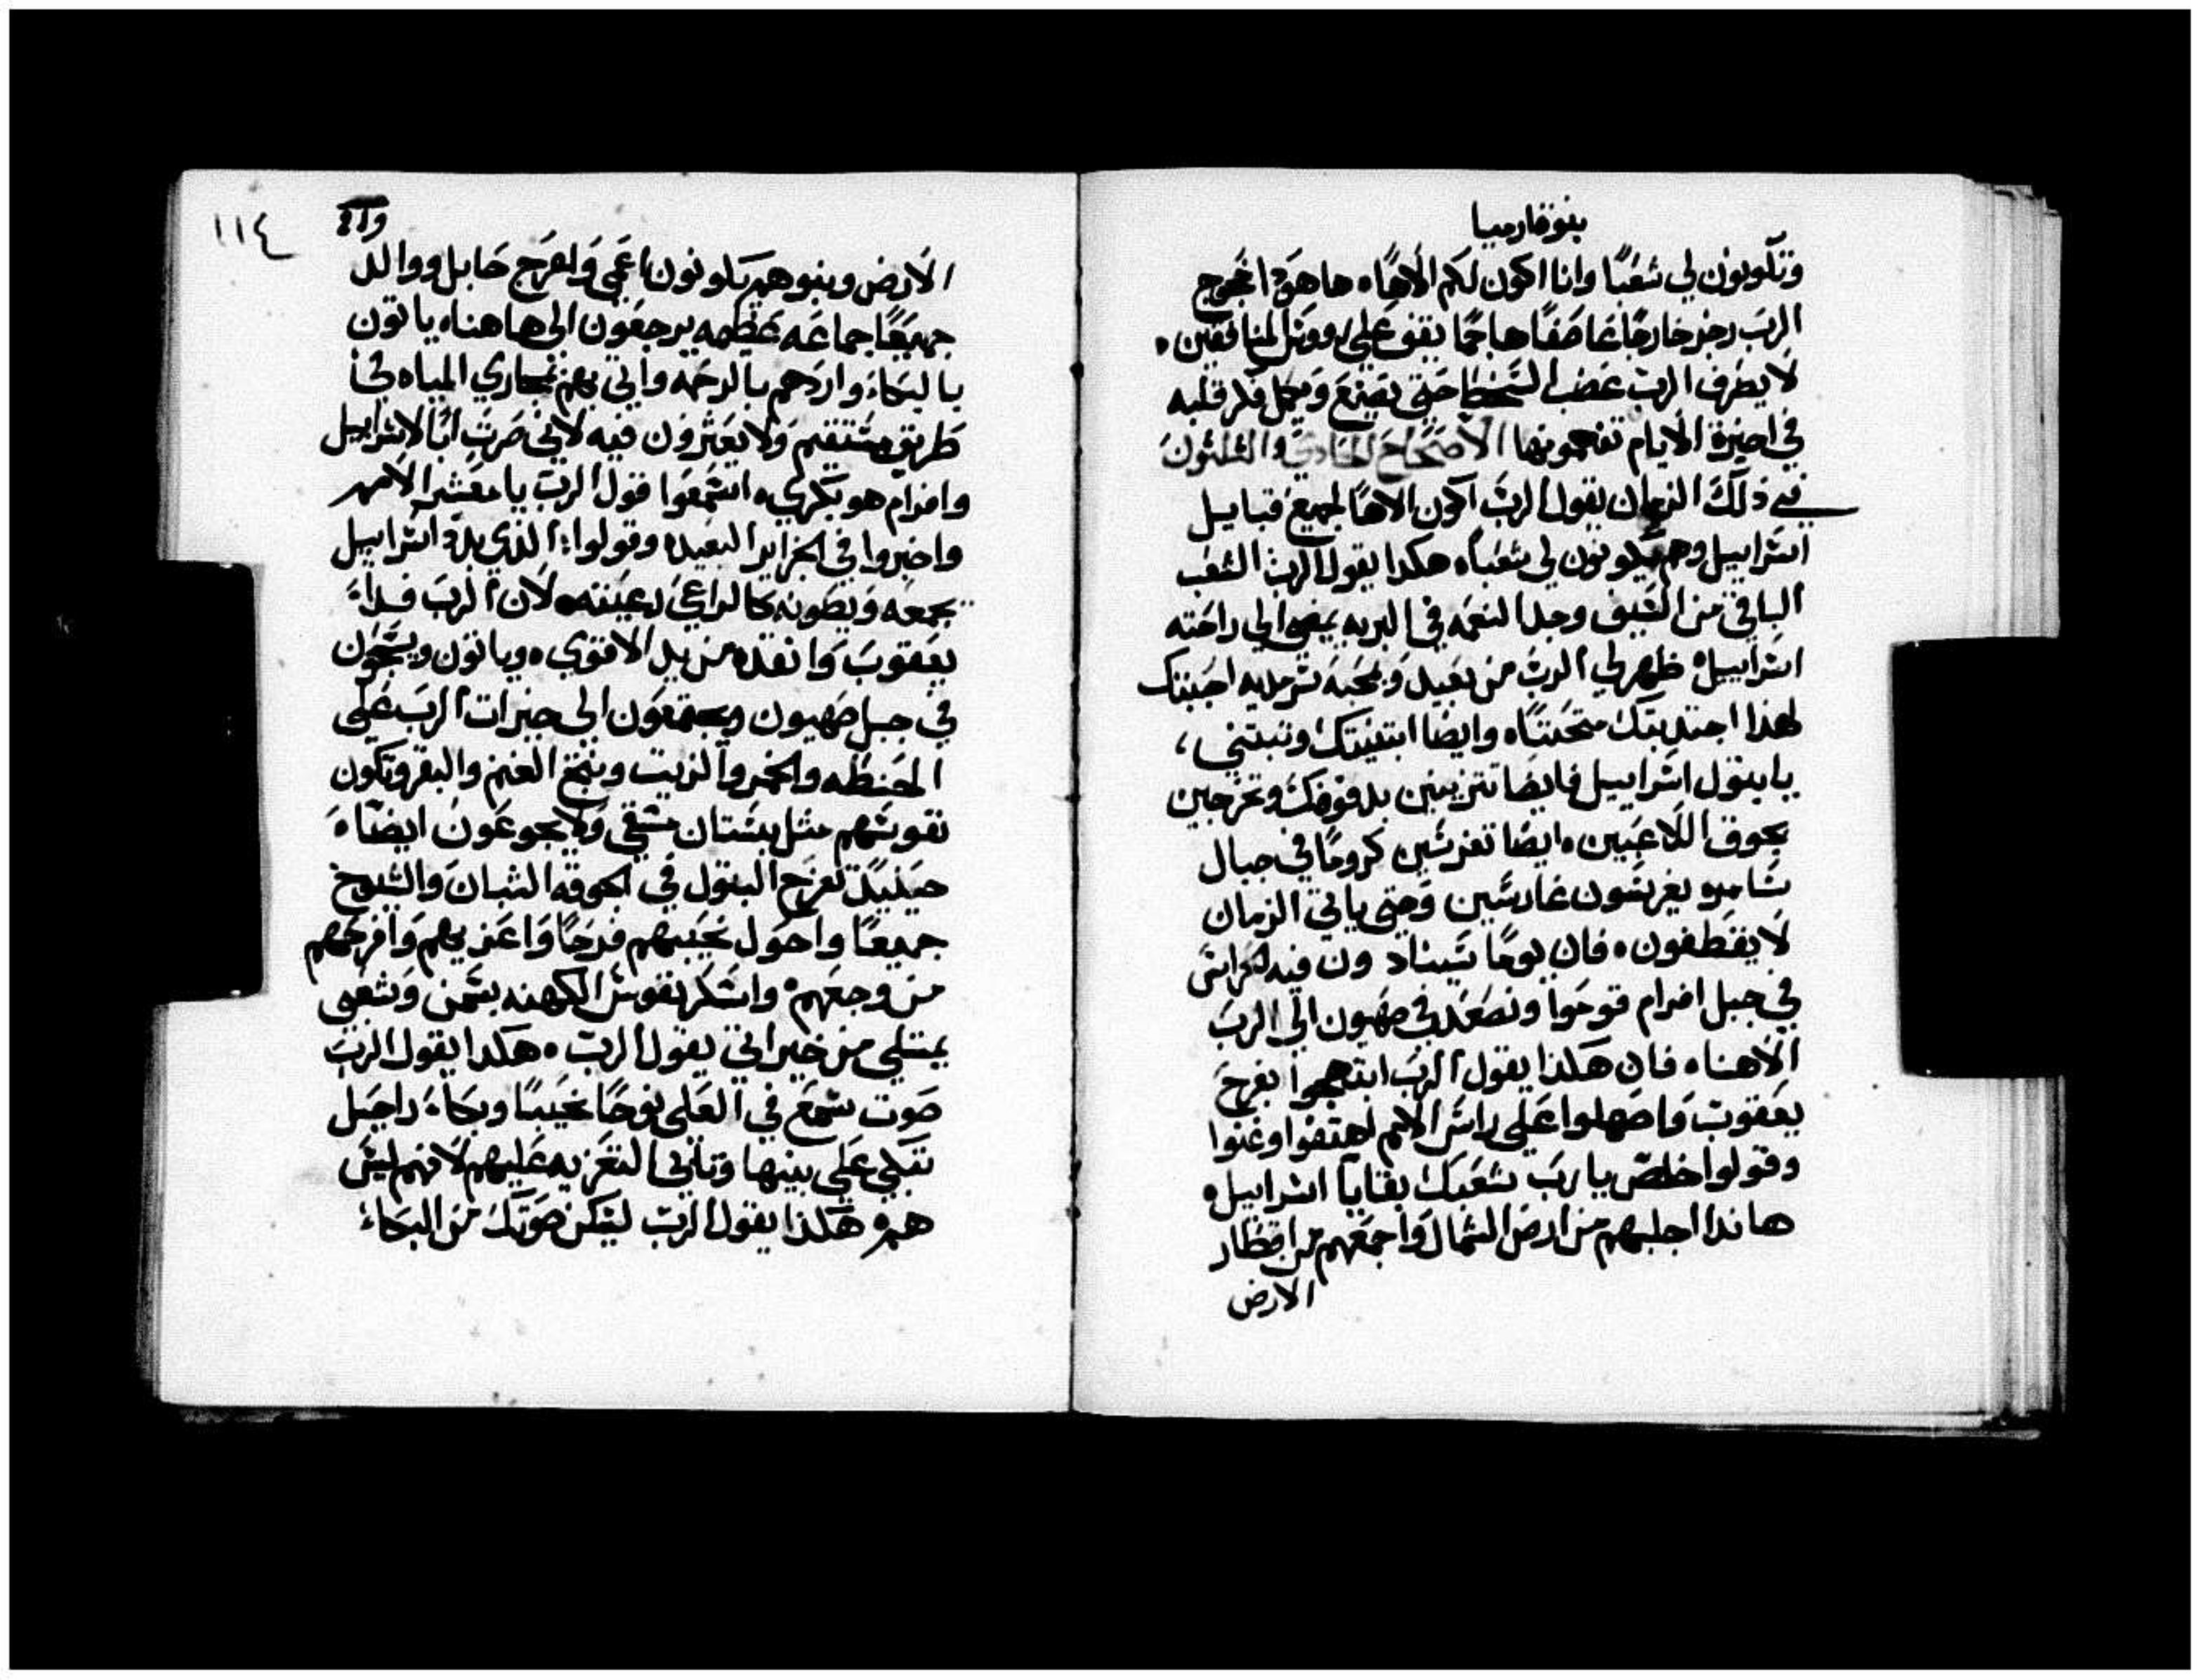 بنوة ارميا
وتكونون لي شعبًا وانا اكون لكم الاهًا ه ها هوذا يخرج
الرب رجز خارجًا عاصفًا هاجمًا يقنو علي رووس المنافقين ه
لا يطرف الرب غضب السخط حتي يصنع ويكمل فكر قلبه
في اخيرة الايام تفهمونها الاصحاح الحادي والثلثون
في ذلك الزمان يقول الرب اكون الاهًا لجميع قبايل
اسراييل وهم يكونون لي شعبًا ه هكدا يقول الرب الشعب
الباقي من السيف وجد النعمه في البريه يمضي الي راحته
اسراييل ه ظهر لي الرب من بعيد وبمحبه سرمديه احببتك
لهذا اجتدبتك متحننًا ه وايضا ابتنيتك وتبتني ،
يا بتول اسراييل فايضا تتزينين بدفوفك وتخرجين
بجوق اللاعبين ه ايضا تغرسين كرومًا في جبال
سامره يغرسون غارسين وحتي ياتي الزمان
لا يقطفون ه فان يومًا سينادون فيه الحراس
في جبل افرام قوموا ونصعد في صهيون الي الرب
الاهنا ه فان هكذا يقول الرب ابتهجوا بفرح
يعقوب واصهلوا علي راس الامم اهتفوا وغنوا
وقولوا خلص يا رب شعبك بقايا اسراييل ه
هاندا اجلبهم من ارض الشمال واجمعهم من اقطار
الارض
١١٤
الارض وبنوهم يكونون اعمي واعرج حابل ووالد
جميعًا جماعه عظيمه يرجعون الي هاهنا ه ياتون
بالبكاء واردهم بالرحمه واتي بهم بمجاري المياه في
طريق مستقيم ولا يعثرون فيه لاني صرت ابًا لاسراييل
وافرام هو بكري ه اسمعوا قول الرب يا معشر الامم
واخبروا في الجزاير البعيده وقولوا الذي بدد اسراييل
يجمعه ويصونه كالراعي رعيته ه لان الرب فداء
يعقوب وانقده من يد الاقوي ه وياتون ويسبحون
في جبل صهيون ويجتمعون الي خيرات الرب علي
الحنطه والخمر والزيت ونتج الغنم والبقر وتكون
نفوسهم مثل بستان مسقي ولا يجوعون ايضًا ه
حينيد تفرح البتول في الجوقه الشبان والشيوخ
جميعًا واحول نحيبهم فرحًا واعزيهم وافرحهم
من وجعهم ه واسكر نفوس الكهنه بسمن وشعبي
يمتلي من خيراتي يقول الرب ه هكدا يقول الرب
صوت سمع في العلي نوحًا نحيبًا وبكاء راحيل
تبكي علي بنيها وتابي التعزيه عليهم لانهم ليس
هم ه هكذا يقول الرب ليسكن صوتك من البكاء